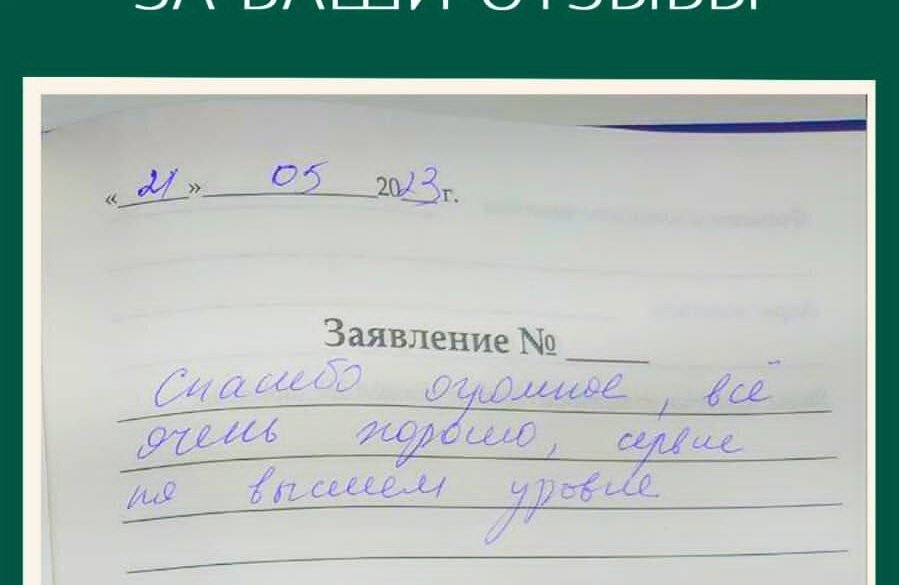 ЗА ВАШИ ОТЗЫВЫ
« 21 » 05 2023 г.
Заявление №
Спасибо огромное, всё
очень хорошо, сервис
на высшем уровне